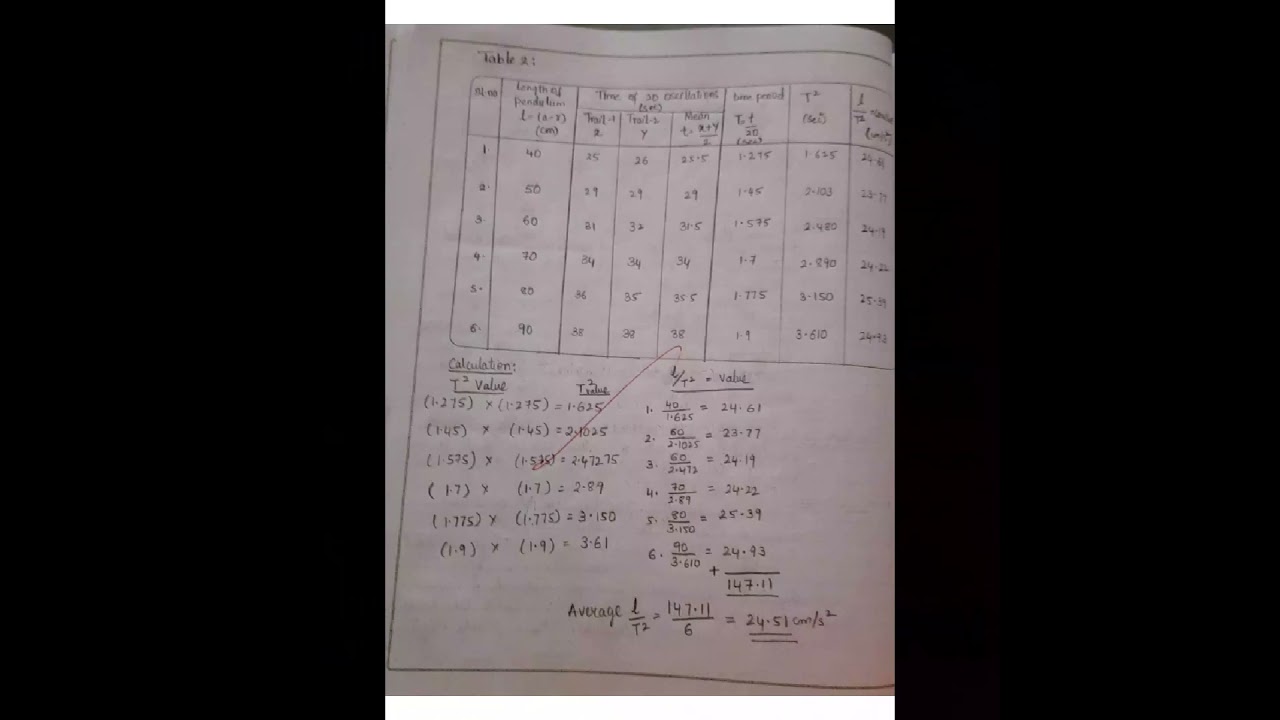 Table 2:
Sl.no Length of pendulum l=(a-r) (cm) Time of 20 oscillations (sec) Trail-1 x Trail-2 y Mean t=x+y/2 time period T=t/20 (sec) T² (sec²) l/T²
1. 40 25 26 25.5 1.275 1.625 24.61
2. 50 29 29 29 1.45 2.103 23.77
3. 60 31 32 31.5 1.575 2.480 24.19
4. 70 34 34 34 1.7 2.890 24.22
5. 80 36 35 35.5 1.775 3.150 25.39
6. 90 38 38 38 1.9 3.610 24.93
Calculation:
T² Value T² value l/T² = value
(1.275) × (1.275) = 1.625 1. 40/1.625 = 24.61
(1.45) × (1.45) = 2.1025 2. 60/2.1025 = 23.77
(1.575) × (1.575) = 2.47275 3. 60/2.473 = 24.19
(1.7) × (1.7) = 2.89 4. 70/2.89 = 24.22
(1.775) × (1.775) = 3.150 5. 80/3.150 = 25.39
(1.9) × (1.9) = 3.61 6. 90/3.610 = 24.93
+ 147.11
Average l/T² = 147.11/6 = 24.51 cm/s²